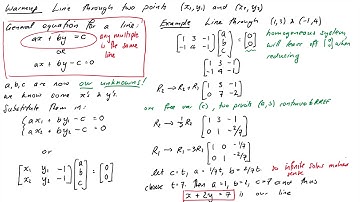 Warmup Line through two points (x₁,y₁) and (x₂,y₂)
General equation for a line:
ax + by = c
or
ax + by - c = 0
any multiple is the same line
a, b, c are now our unknowns!
we know some x's & y's.
Substitute them in:
{ ax₁ + by₁ - c = 0
ax₂ + by₂ - c = 0
or
[x₁ y₁ -1
x₂ y₂ -1] [a b c] = [0 0]
Example Line through (1,3) & (-1,4)
[1 3 -1
-1 4 -1] [a b c] = [0 0]
homogeneous system,
will leave off [0 0] when
reducing
[1 3 -1
-1 4 -1]
R₂ → R₂ + R₁ [1 3 -1
0 7 -2]
one free var (c), two pivots continue to RREF
R₂ → 1/7 R₂ [1 3 -1
0 1 -2/7]
R₁ → R₁ - 3R₂ [1 0 -1/7
0 1 -2/7]
let c = t, a = 1/7t, b = 2/7t so infinite solns makes sense
choose t = 7. Then a = 1, b = 2, c = 7 and thus
x + 2y = 7 is our line